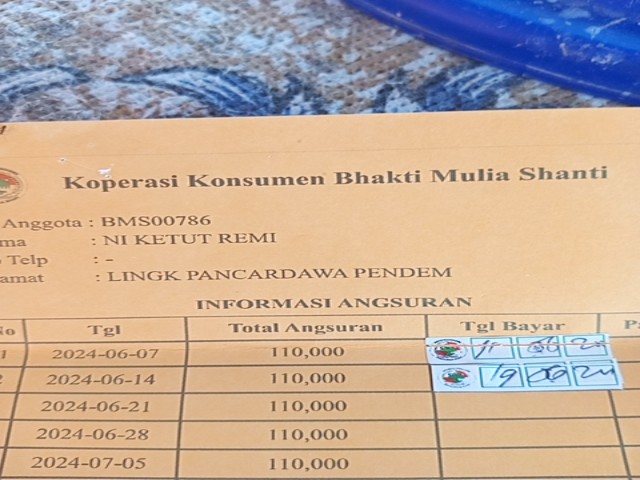 Koperasi Konsumen Bhakti Mulia Shanti
Anggota : BMS00786
ma : NI KETUT REMI
Telp : -
amat : LINGK PANCARDAWA PENDEM
INFORMASI ANGSURAN
No Tgl Total Angsuran Tgl Bayar Pa
1 2024-06-07 110,000 11 06 24
2 2024-06-14 110,000 19 06 24
2024-06-21 110,000
2024-06-28 110,000
2024-07-05 110,000